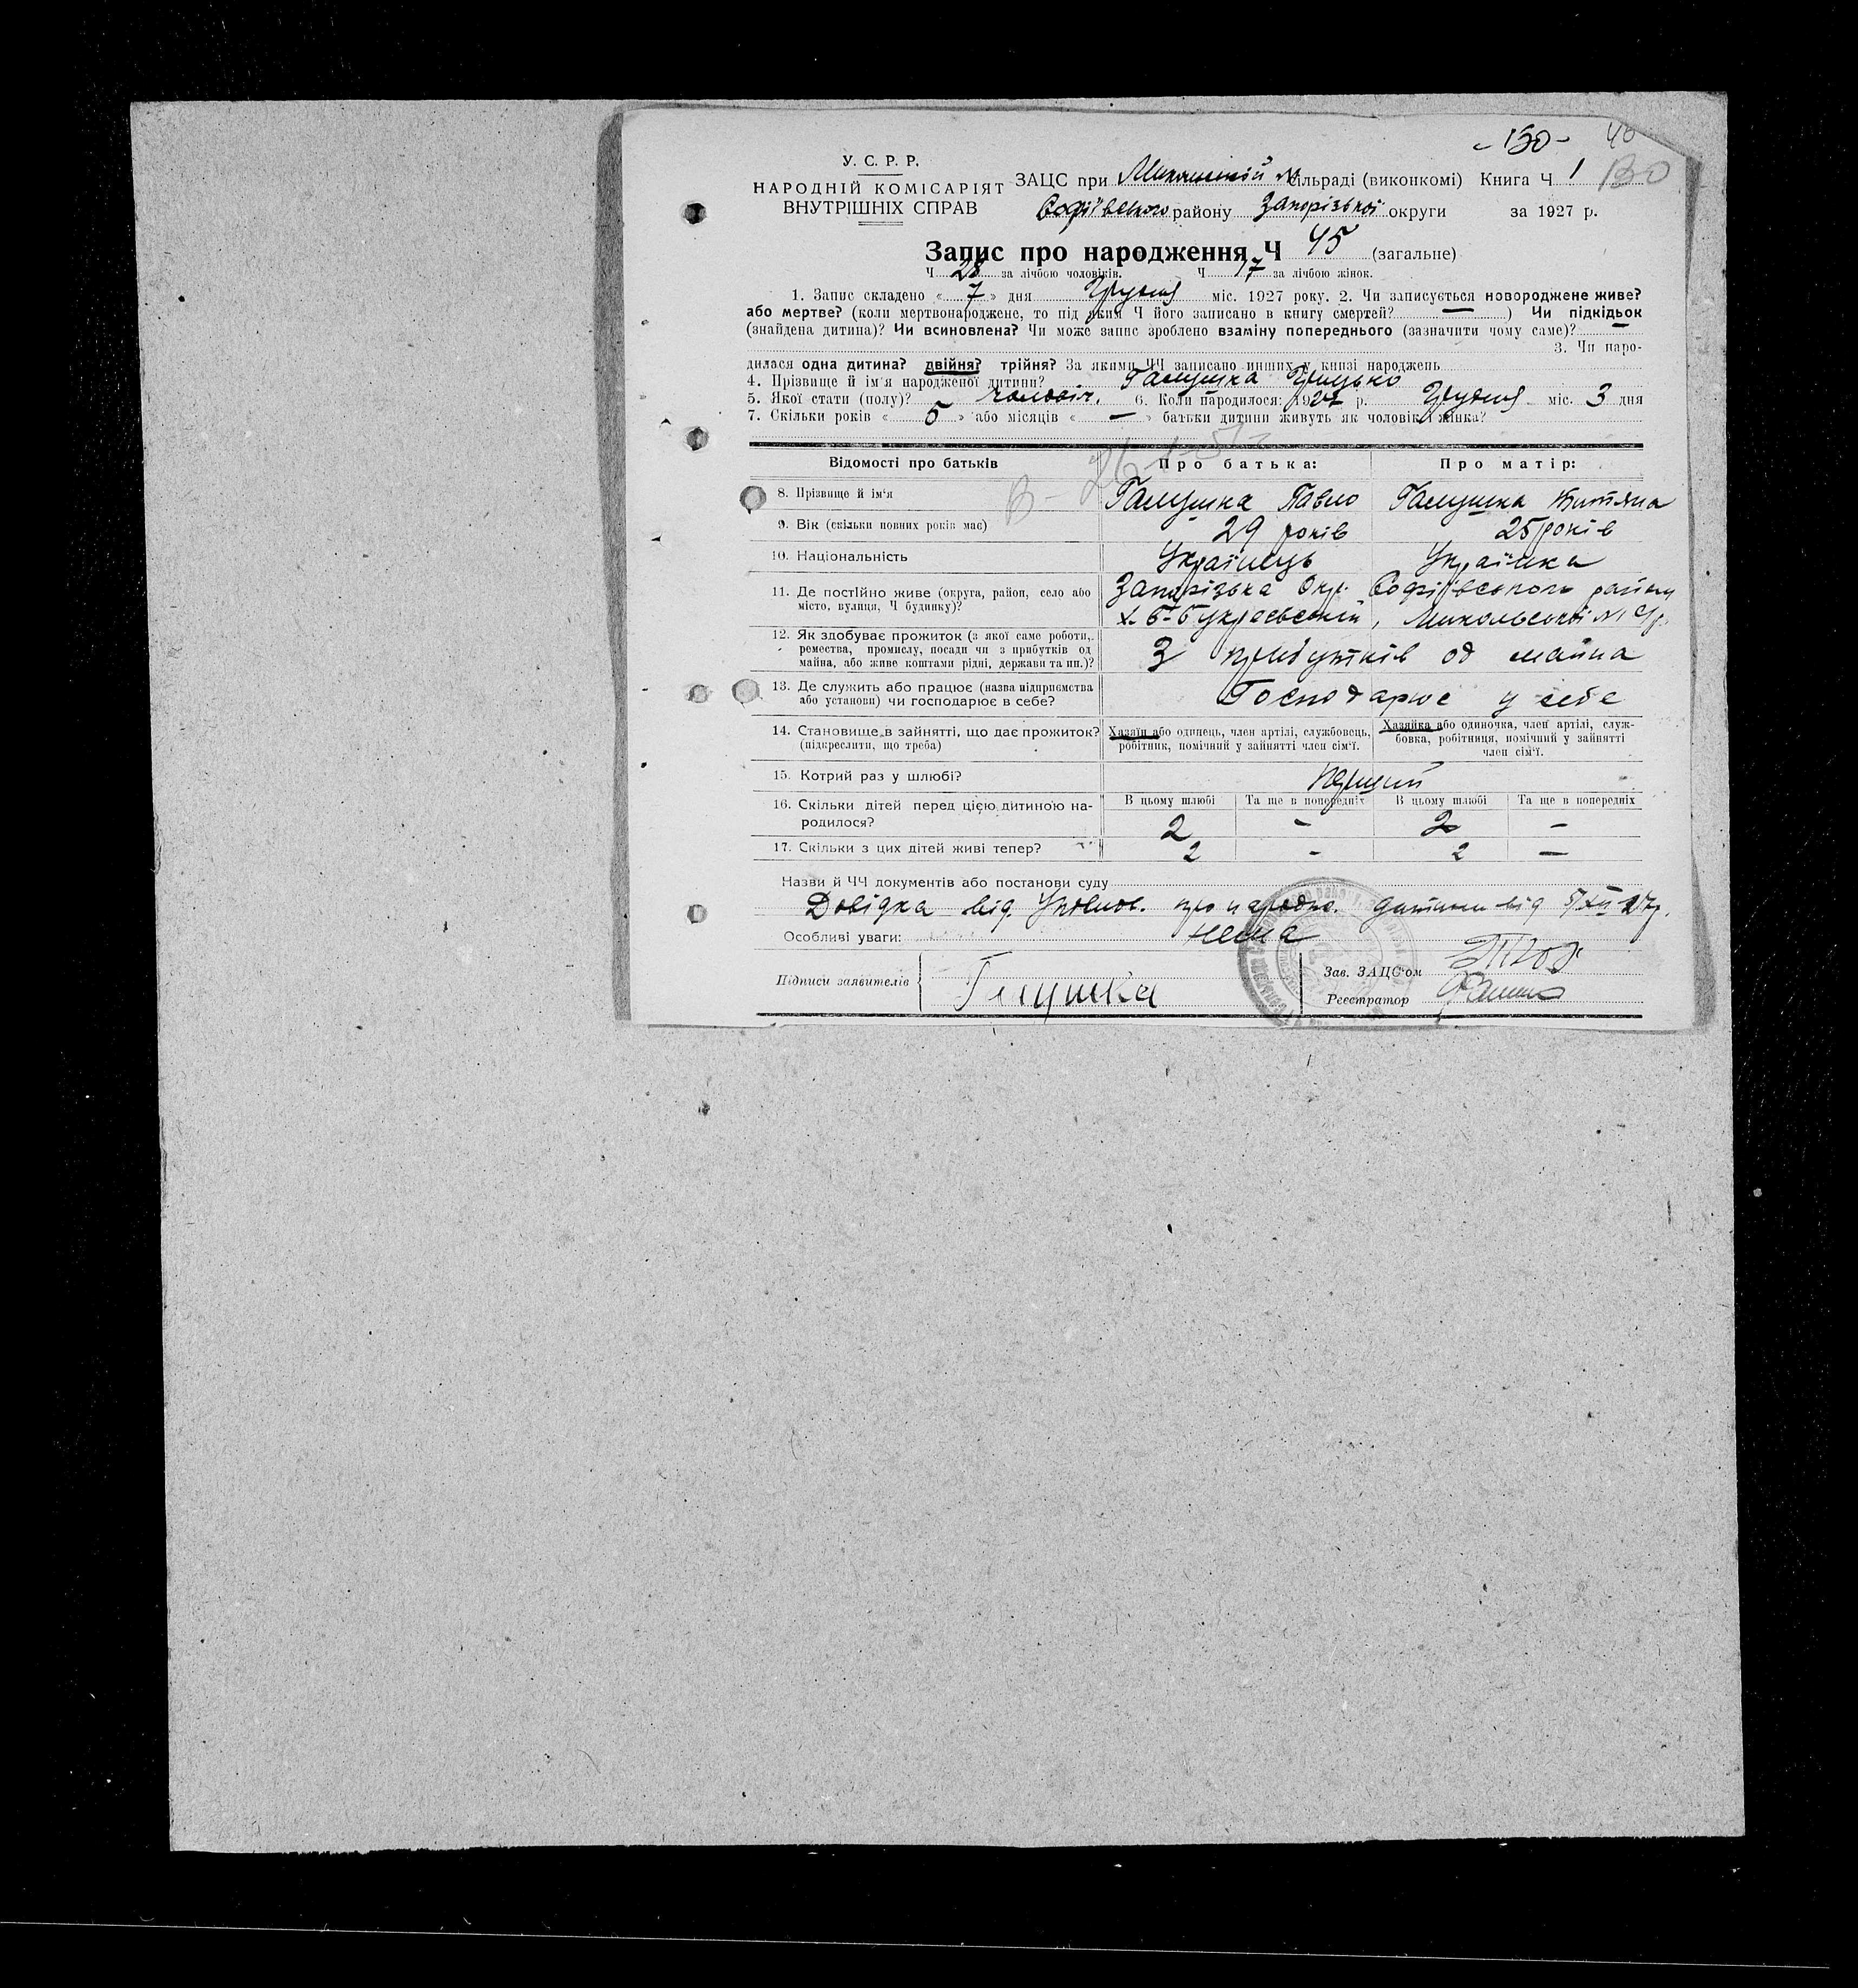 - 130 - 40
У. С. Р. Р.
НАРОДНІЙ КОМІСАРІЯТ
ВНУТРІШНІХ СПРАВ
ЗАЦС при сільраді (виконкомі) Книга Ч 1 130
Софіївського району Запорізької округи за 1927 р.
Запис про народження Ч 45 (загальне)
Ч 28 за лічбою чоловіків. Ч 17 за лічбою жінок.
1. Запис складено « 7 » дня Грудня міс. 1927 року. 2. Чи записується новороджене живе?
або мертве? (коли мертвонароджене, то під яким Ч його записано в книгу смертей? — ) Чи підкідьок
(знайдена дитина)? Чи всиновлена? Чи може запис зроблено взаміну попереднього (зазначити чому саме)? —
3. Чи наро-
дилася одна дитина? двійня? трійня? За якими ЧЧ записано инших у книзі народжень
4. Прізвище й ім'я народженої дитини? Галушка Грицько
5. Якої стати (полу)? чоловіч. 6. Коли народилося: 1927 р. Грудня міс. 3 дня
7. Скільки років « 5 » або місяців « — » батьки дитини живуть як чоловік і жінка?
Відомості про батьків Про батька: Про матір:
8. Прізвище й ім'я Галушка Павло Галушка
9. Вік (скільки повних років має) 29 років 25 років
10. Національність Українець Українка
11. Де постійно живе (округа, район, село або Запорізька Окр. Софіївського району
місто, вулиця, Ч будинку)?
12. Як здобуває прожиток (з якої саме роботи,
ремества, промислу, посади чи з прибутків од З прибутків од майна
майна, або живе коштами рідні, держави та ин.)?
13. Де служить або працює (назва підприємства Господарює у себе
або установи) чи господарює в себе?
14. Становище в зайнятті, що дає прожиток? Хазяїн або одинець, член артілі, службовець, Хазяйка або одиночка, член артілі, служ-
(підкреслити, що треба) робітник, помічний у зайнятті член сім'ї. бовка, робітниця, помічний у зайнятті
член сім'ї.
15. Котрий раз у шлюбі? перший
16. Скільки дітей перед цією дитиною на- В цьому шлюбі Та ще в попередніх В цьому шлюбі Та ще в попередніх
родилося? 2 - 2 -
17. Скільки з цих дітей живі тепер? 2 - 2 —
Назви й ЧЧ документів або постанови суду
Довідка від Уповнов. про народж. дитини від 5/XII 27р.
Особливі уваги: нема
Підписи заявителів Галушка Зав. ЗАЦС'ом
Реєстратор